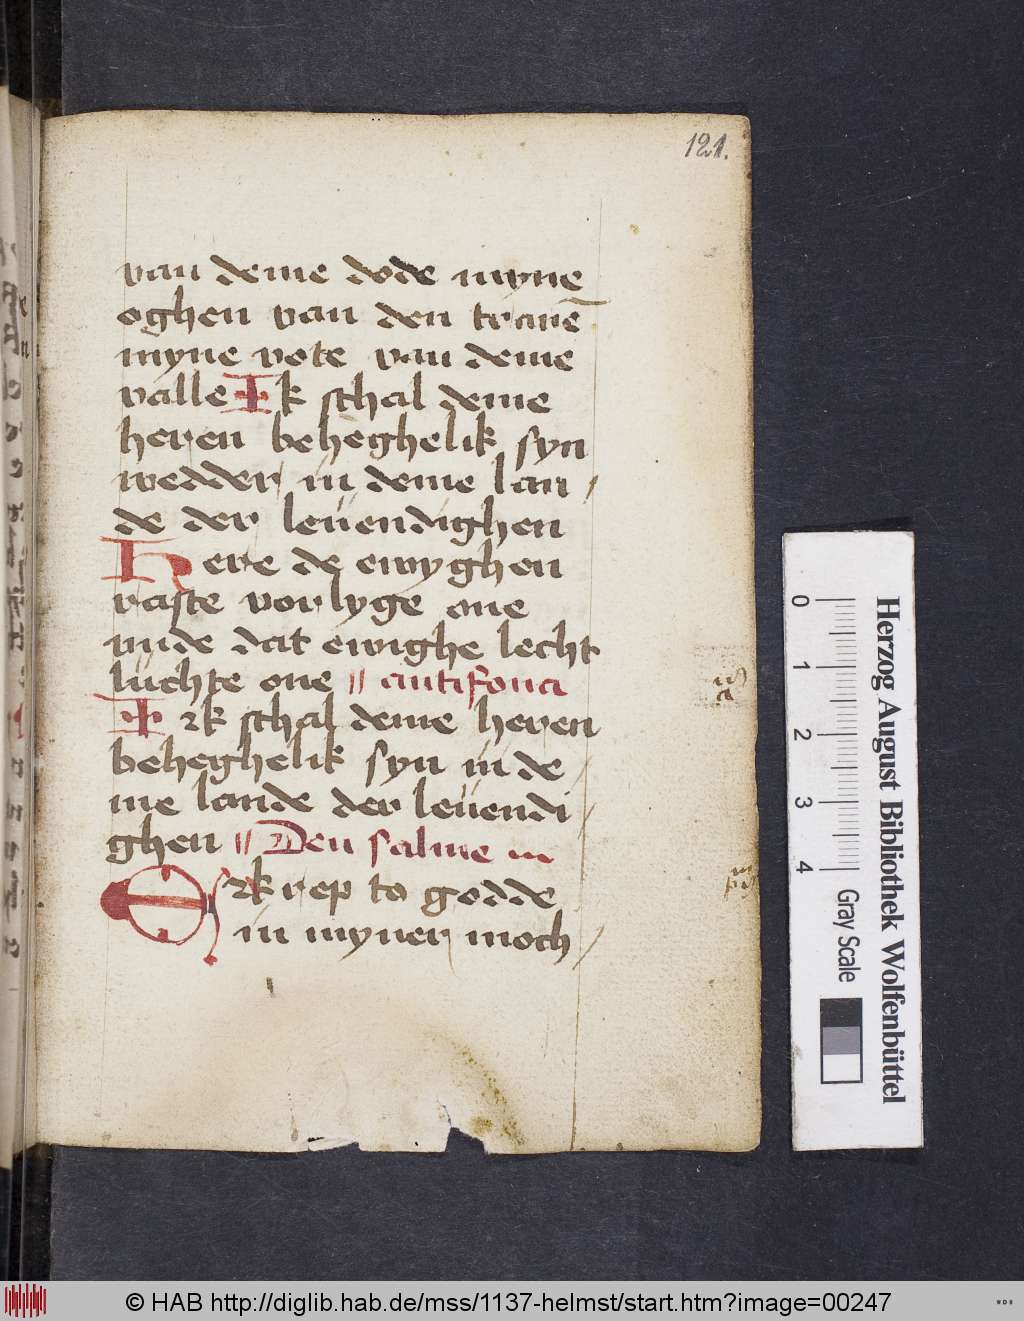 121.
van deme dode myne
oghen van den tranē
myne vote van deme
valle Ik schal deme
heren beheghelik syn
wedder in deme lan
de der leuendighen
Here de ewyghen
raste vorlyge one
unde dat ewighe lecht
luchte one antifona
Ik schal deme heren
beheghelik syn in de
me lande der leuendi
ghen Den salme
Ek rep to godde
in myner moch
0 1 2 3 4
Gray Scale
Herzog August Bibliothek Wolfenbüttel
© HAB http://diglib.hab.de/mss/1137-helmst/start.htm?image=00247